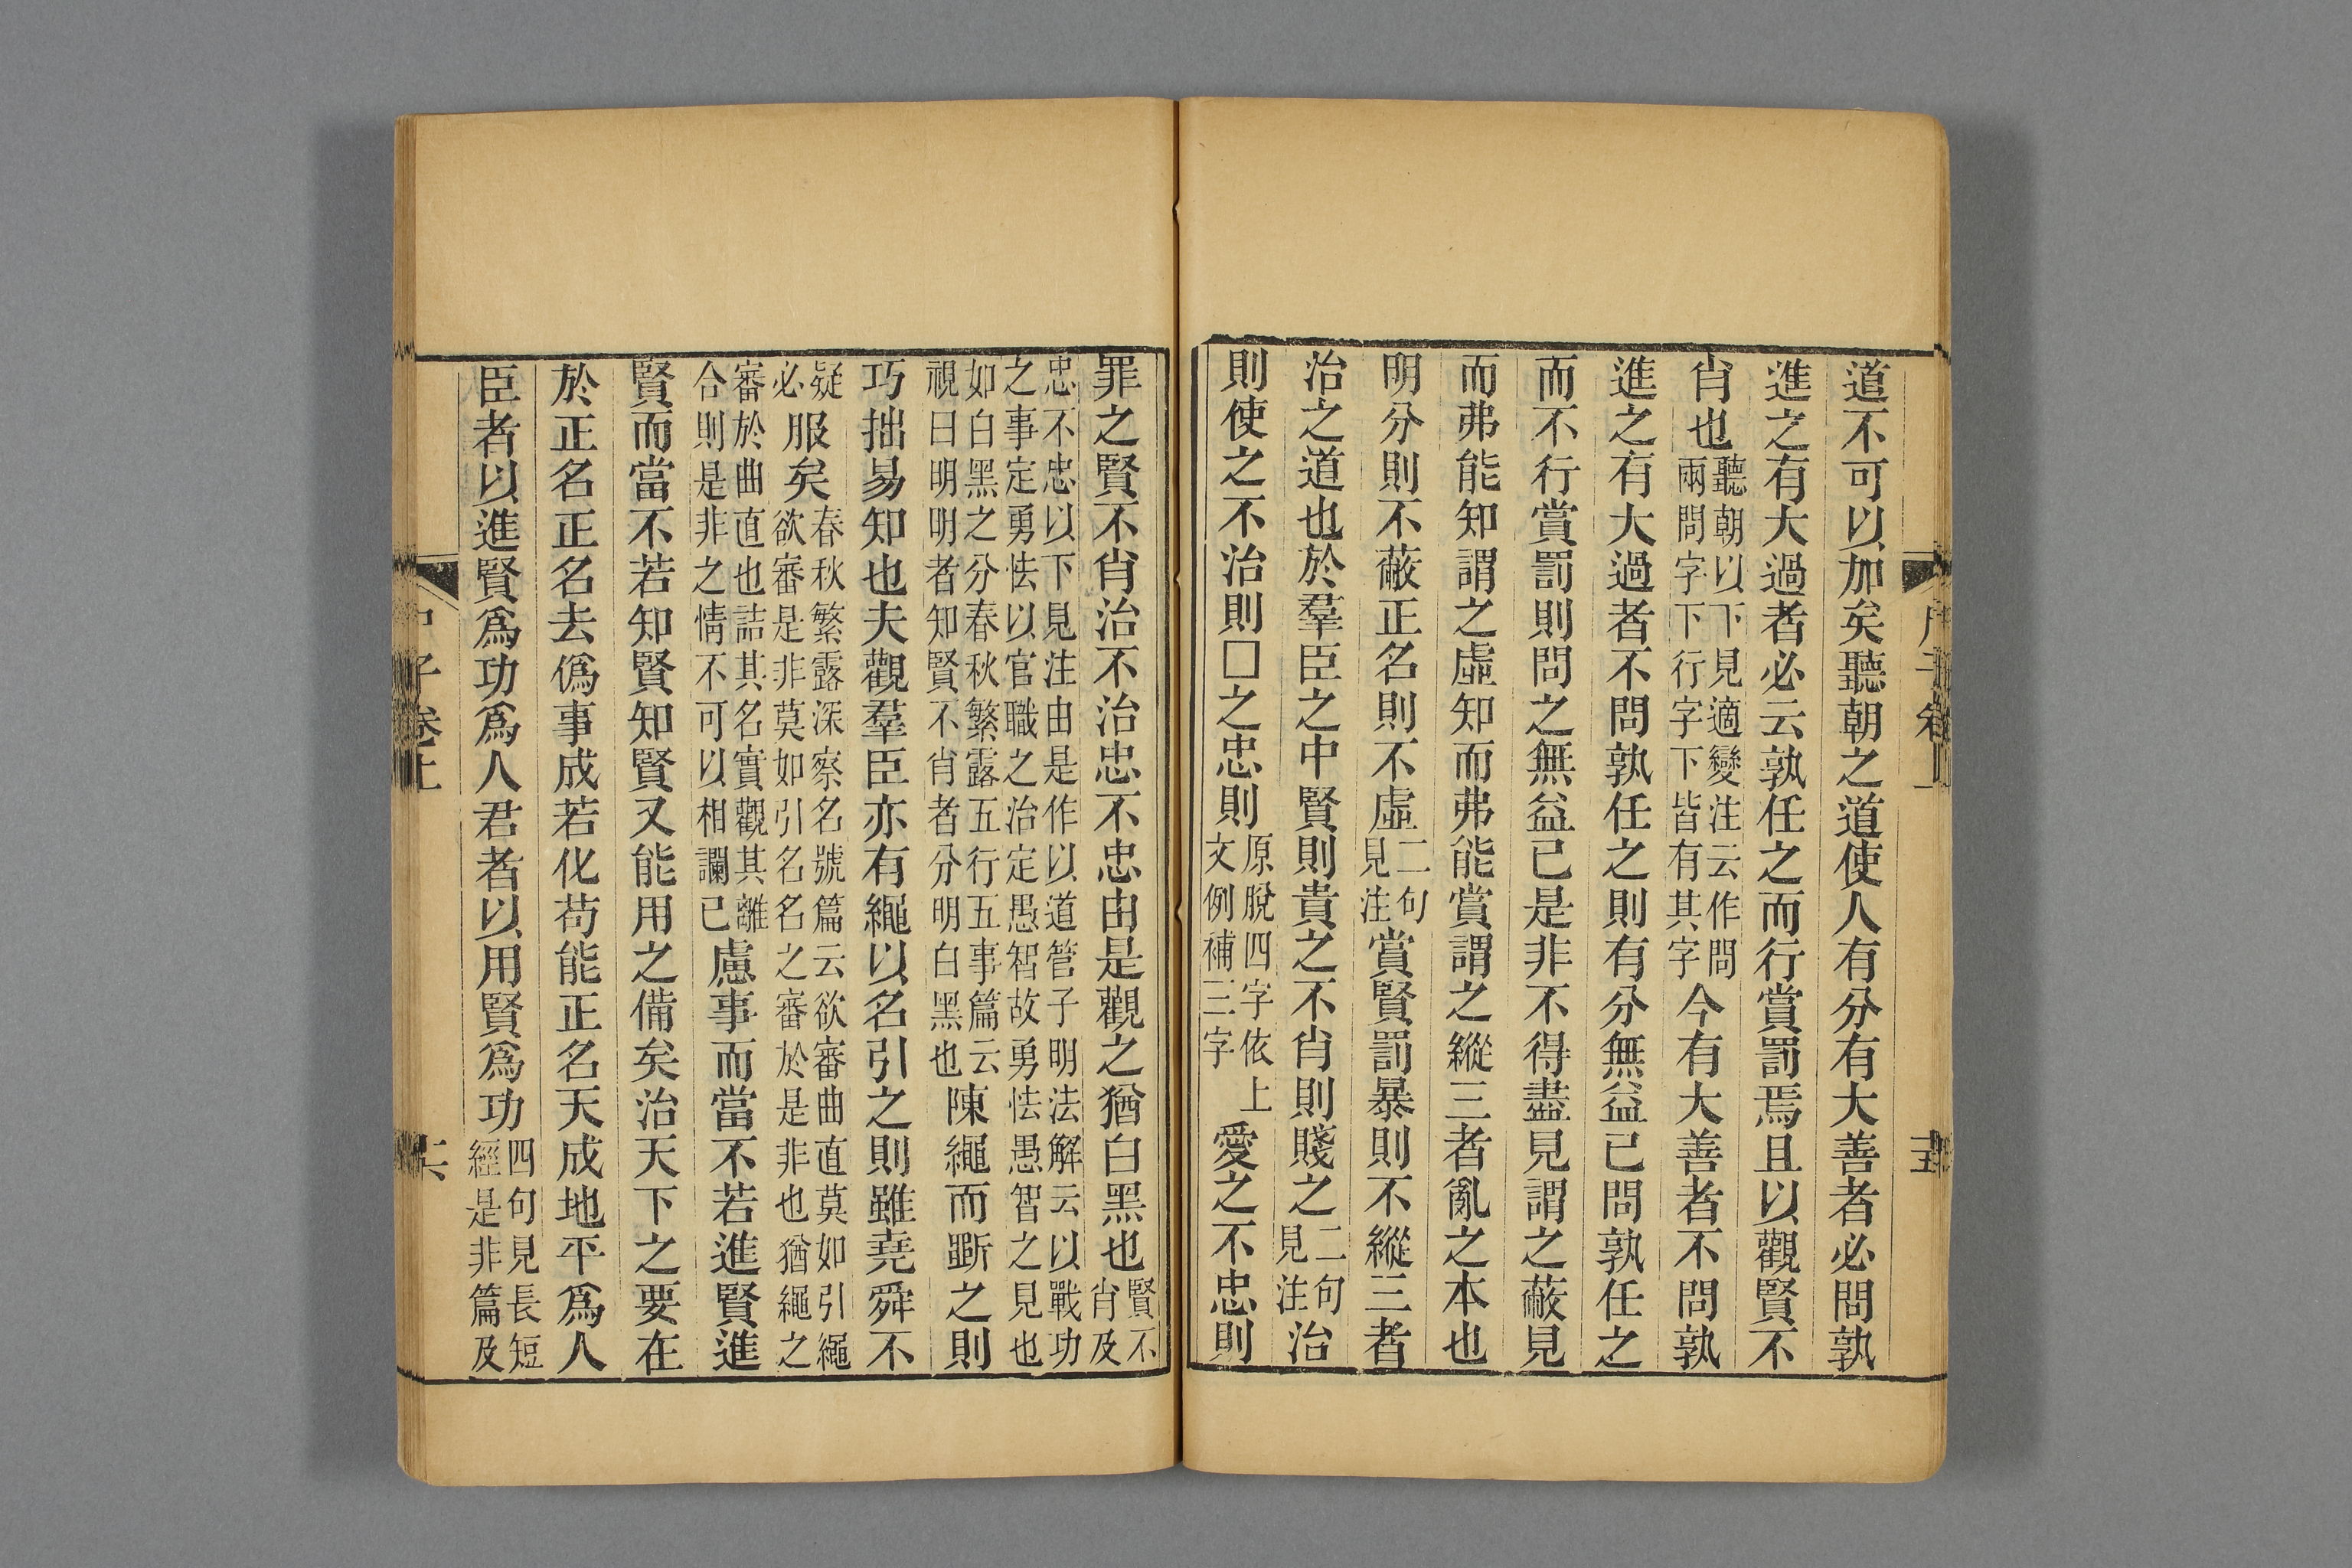 尸子卷上 十五
道不可以加矣聽朝之道使人有分有大善者必問孰
進之有大過者必云孰任之而行賞罰焉且以觀賢不
肖也聽朝以下見適變注云作問兩問字下行字下皆有其字今有大善者不問孰
進之有大過者不問孰任之則有分無益已問孰任之
而不行賞罰則問之無益已是非不得盡見謂之蔽見
而弗能知謂之虛知而弗能賞謂之縱三者亂之本也
明分則不蔽正名則不虛二句見注賞賢罰暴則不縱三者
治之道也於羣臣之中賢則貴之不肖則賤之二句見注治
則使之不治則□之忠則原脫四字依上文例補三字愛之不忠則
罪之賢不肖治不治忠不忠由是觀之猶白黑也賢不肖及
忠不忠以下見注由是作以道管子明法解云以戰功之事定勇怯以官職之治定愚智故勇怯愚智之見也
如白黑之分春秋繁露五行五事篇云視曰明明者知賢不肖者分明白黑也陳繩而斲之則
巧拙易知也夫觀羣臣亦有繩以名引之則雖堯舜不
疑必服矣春秋繁露深察名號篇云欲審曲直莫如引繩欲審是非莫如引名名之審於是非也猶繩之
審於曲直也詰其名實觀其離合則是非之情不可以相讕已慮事而當不若進賢進
賢而當不若知賢知賢又能用之備矣治天下之要在
於正名正名去僞事成若化苟能正名天成地平爲人
臣者以進賢爲功爲人君者以用賢爲功四句見長短經是非篇及
尸子卷上 十六